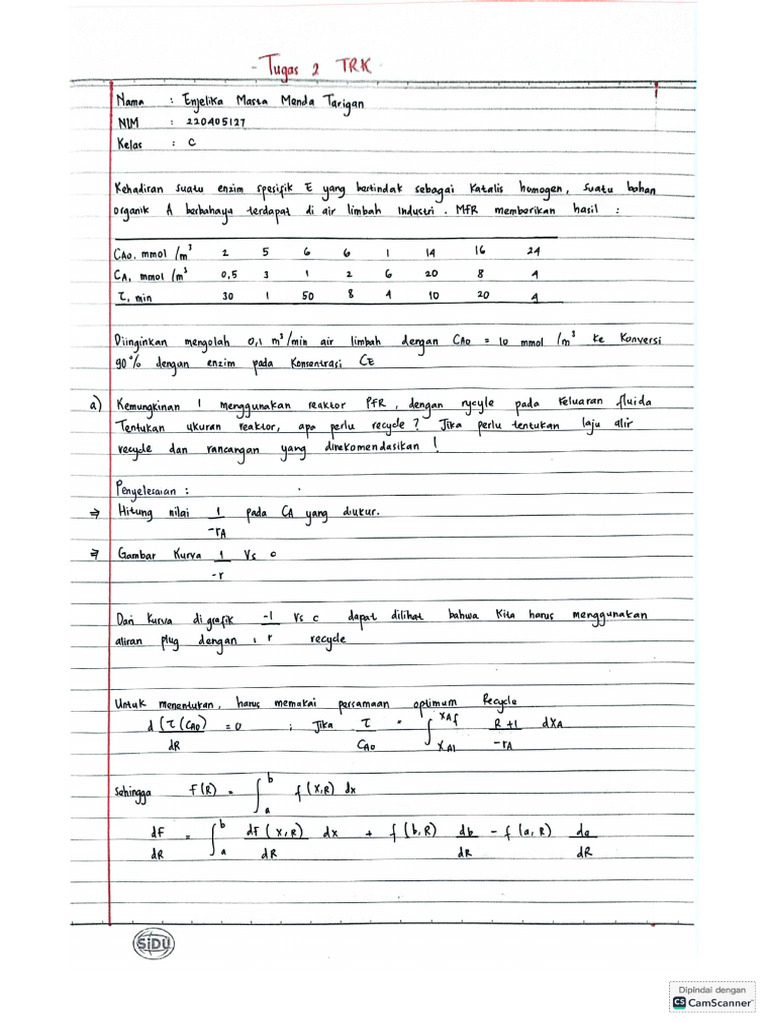 - Tugas 2 TRK -
Nama : Enjelika Masta Manda Tarigan
NIM : 220405127
Kelas : C
Kehadiran suatu enzim spesifik E yang bertindak sebagai katalis homogen, suatu bahan
organik A berbahaya terdapat di air limbah industri. MFR memberikan hasil :
CA0, mmol/m³ 2 5 6 6 1 14 16 24
CA, mmol/m³ 0,5 3 1 2 6 20 8 4
τ, min 30 1 50 8 4 10 20 4
Diinginkan mengolah 0,1 m³/min air limbah dengan CA0 = 10 mmol/m³ ke konversi
90% dengan enzim pada konsentrasi CE
a) Kemungkinan 1 menggunakan reaktor PFR, dengan rycyle pada keluaran fluida
Tentukan ukuran reaktor, apa perlu recycle? Jika perlu tentukan laju alir
recycle dan rancangan yang direkomendasikan!
Penyelesaian :
⇒ Hitung nilai 1/-rA pada CA yang diukur.
⇒ Gambar kurva 1/-r Vs c
Dari kurva di grafik -1/r Vs c dapat dilihat bahwa kita harus menggunakan
aliran plug dengan , recycle
Untuk menentukan, harus memakai persamaan optimum Recycle
d(τ(CA0)/dR = 0 ; Jika τ/CA0 = ∫_XA1^XAf R+1/-rA dXA
Sehingga F(R) = ∫_a^b f(X,R) dx
dF/dR = ∫_a^b df(X,R)/dR dx + f(b,R) db/dR - f(a,R) da/dR
SiDU
Dipindai dengan
CS CamScanner